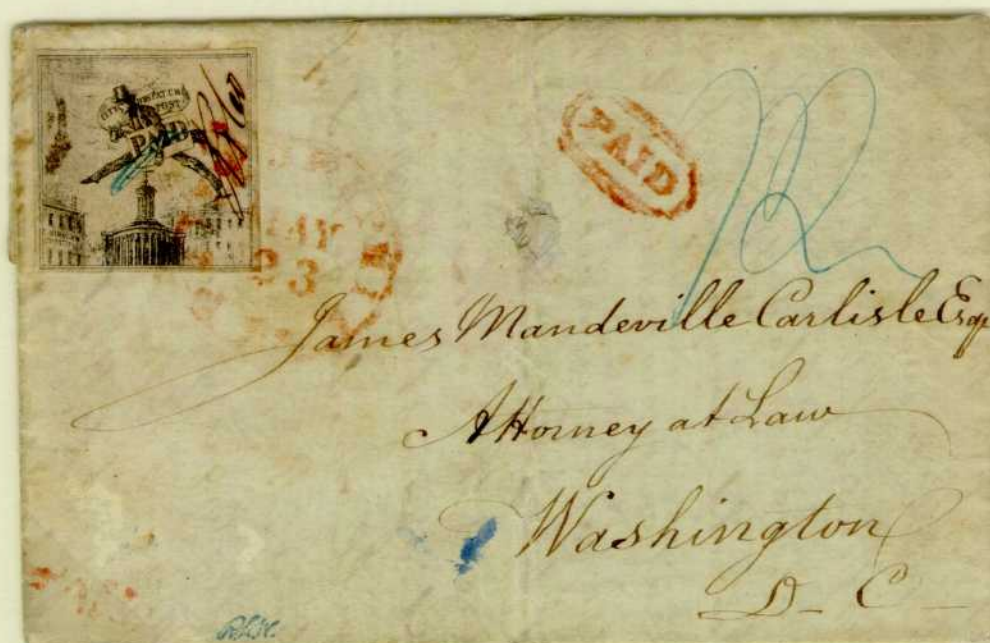 CITY DESPATCH
POST
PAID
PAID
MAY
23
James Mandeville Carlisle Esqr
Attorney at Law
Washington
D. C.